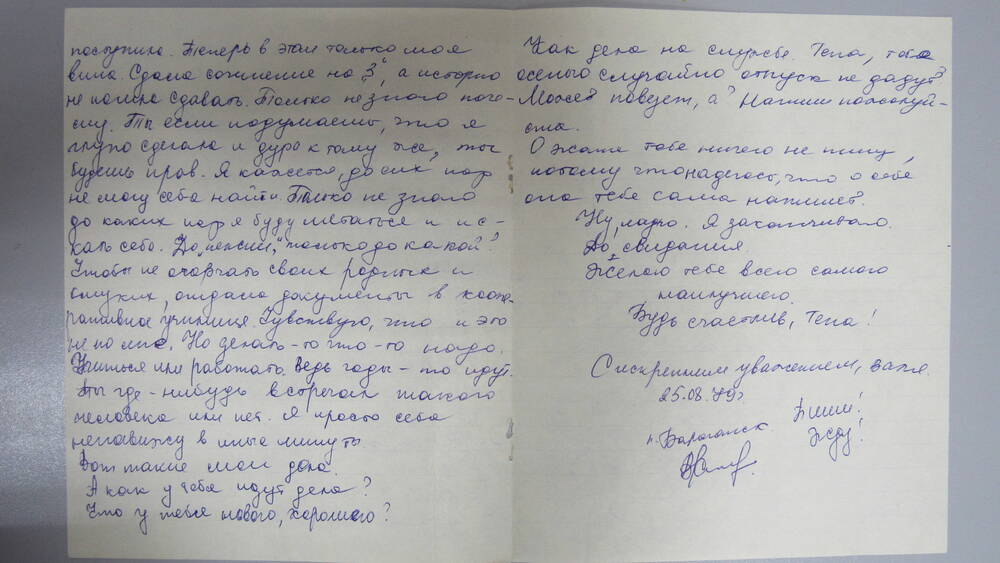 поступила. Теперь в этом только моя
вина. Сдала сочинение на „3“, а историю
не пошла сдавать. Только не знаю поче-
му. Ты если подумаешь, что я
глупо сделала и дура к тому же, ты
будешь прав. Я кажется, до сих пор
не могу себя найти. Только не знаю
до каких пор я буду метаться и ис-
кать себя. До „пенсии,“ только до какой?
Чтобы не огорчать своих родных и
близких, отдала документы в коопе-
ративное училище. Чувствую, что и это
не по мне. Но делать-то что-то надо.
Учиться или работать. Ведь годы-то идут.
Ты где-нибудь встречал такого
человека или нет. Я просто себя
ненавижу в иные минуты
Вот такие мои дела.
А как у тебя идут дела?
Что у тебя нового, хорошего?
Как дела на службе. Гена, тебе
осенью случайно отпуск не дадут?
Может повезет, а? Напиши пожалуй-
ста.
О Кате тебе ничего не пишу,
потому что надеюсь, что о себе
она тебе сама напишет.
Ну, ладно. Я заканчиваю.
До свидания.
Желаю тебе всего самого
наилучшего.
Будь счастлив, Гена!
С искренним уважением, Валя.
25.08.79г
п. Балаганск
Пиши!
Жду!